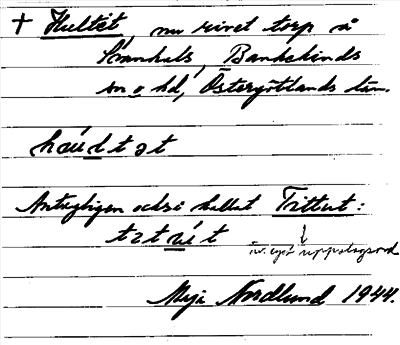 + Hultet, nu rivet torp å
Svanhals, Bankekinds
sn o hd, Östergötlands län.
háu̱ltət
Antagligen också kallat Tittut:
tɪtút
iv. eget uppslagsord
Maja Nordlund 1944.